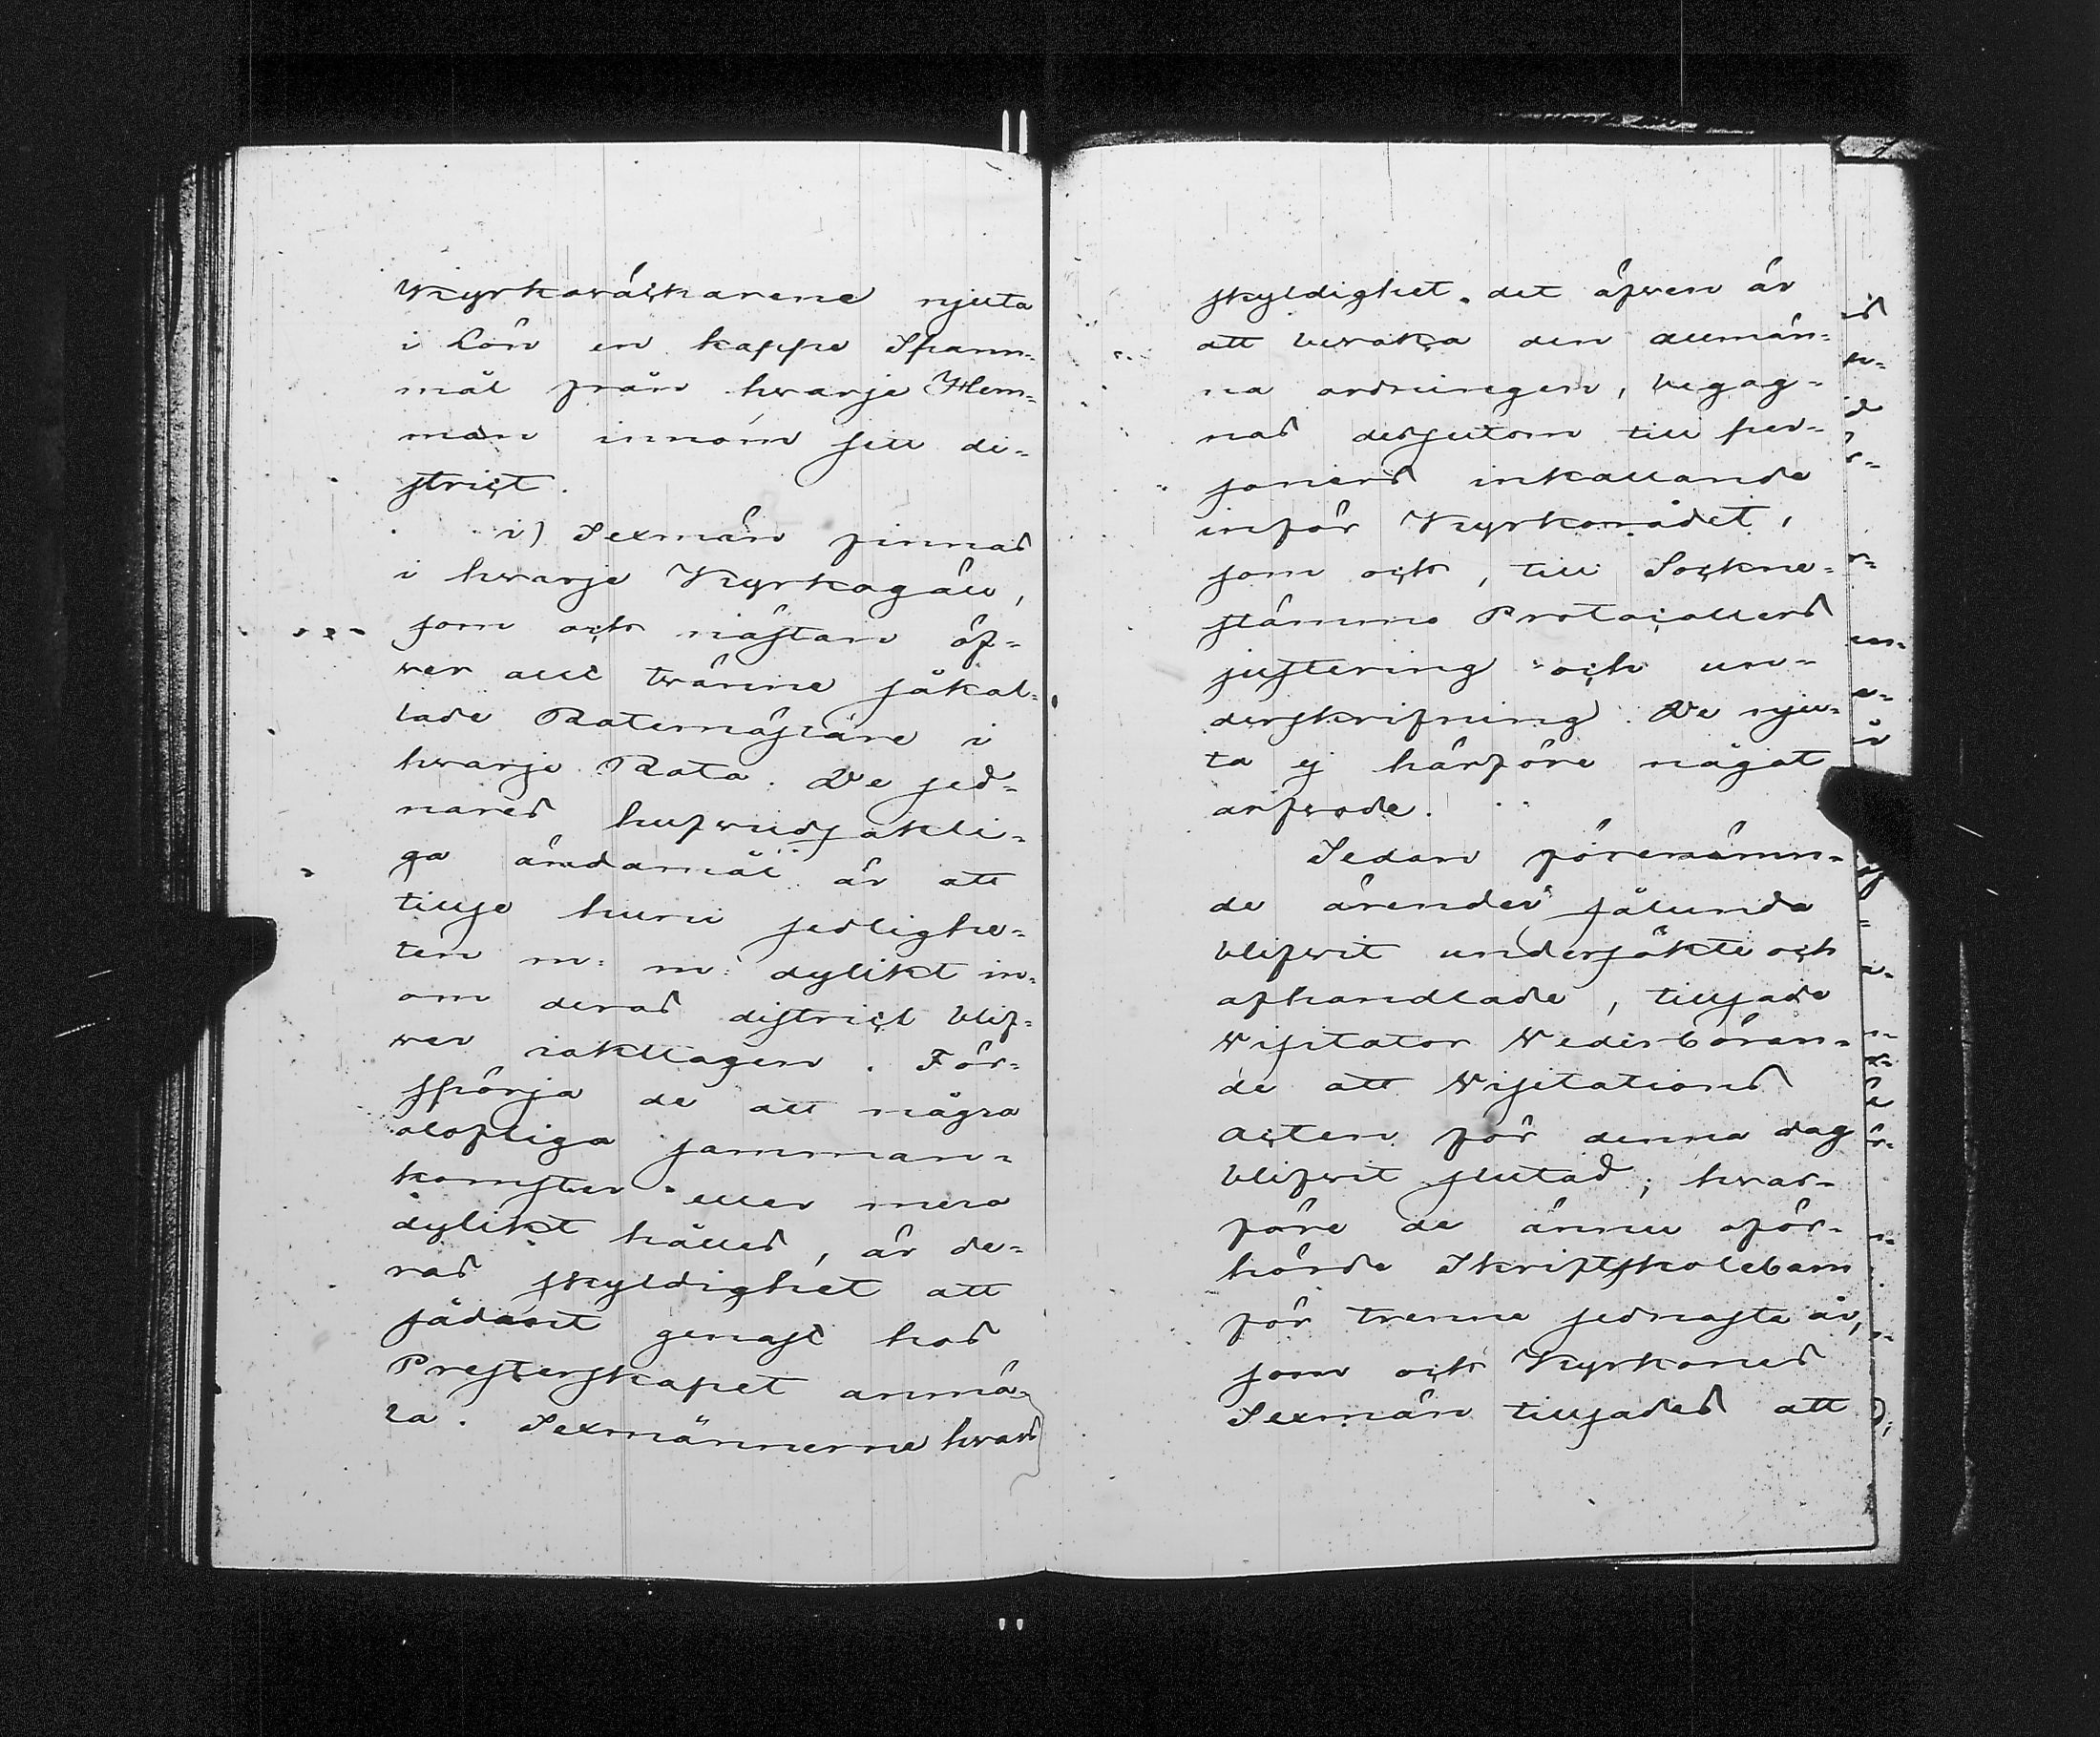 Kyrkoväckarene njuta
i Lön en kappe Spann-
mål från hwarje Hem-
man innom sitt di-
strict.
i) Sexmän finnas
i hwarje Kyrkogäll,
som ock nästan öf-
wer allt twänne såkal-
lade Rotemästare i
hwarje Rota. De sed-
nares hufwudsakli-
ga ändamål är att
tillse huru sedlighe-
ten m: m: dylikt in-
om deras district blif-
wer iakttagen. För-
spörja de att några
olofliga samman-
komster eller mera
dylikt hålles, är de-
ras skyldighet att
sådant genast hos
Presterskapet anmä-
la. Sexmännerne hwars
skyldighet det äfwen är
att bewaka den allmän-
na ordningen, begag-
nas dessutom till per-
soners inkallande
inför Kyrkorådet,
som ock, till Sockne-
stämmo Protocollers
justering och un-
derskrifning. De nju-
ta ej härföre något
arfwode.
Sedan förenämn-
de ärender sålunda
blifwit undersökte och
afhandlade, tillsade
Visitator Vederböran-
de att Visitations
acten för denna dag
blifwit slutad; hwar-
före de ännu oför-
hörde Skriftskolebarn
för trenne sednaste år,
som ock Kyrkones
Sexmän tillsades att